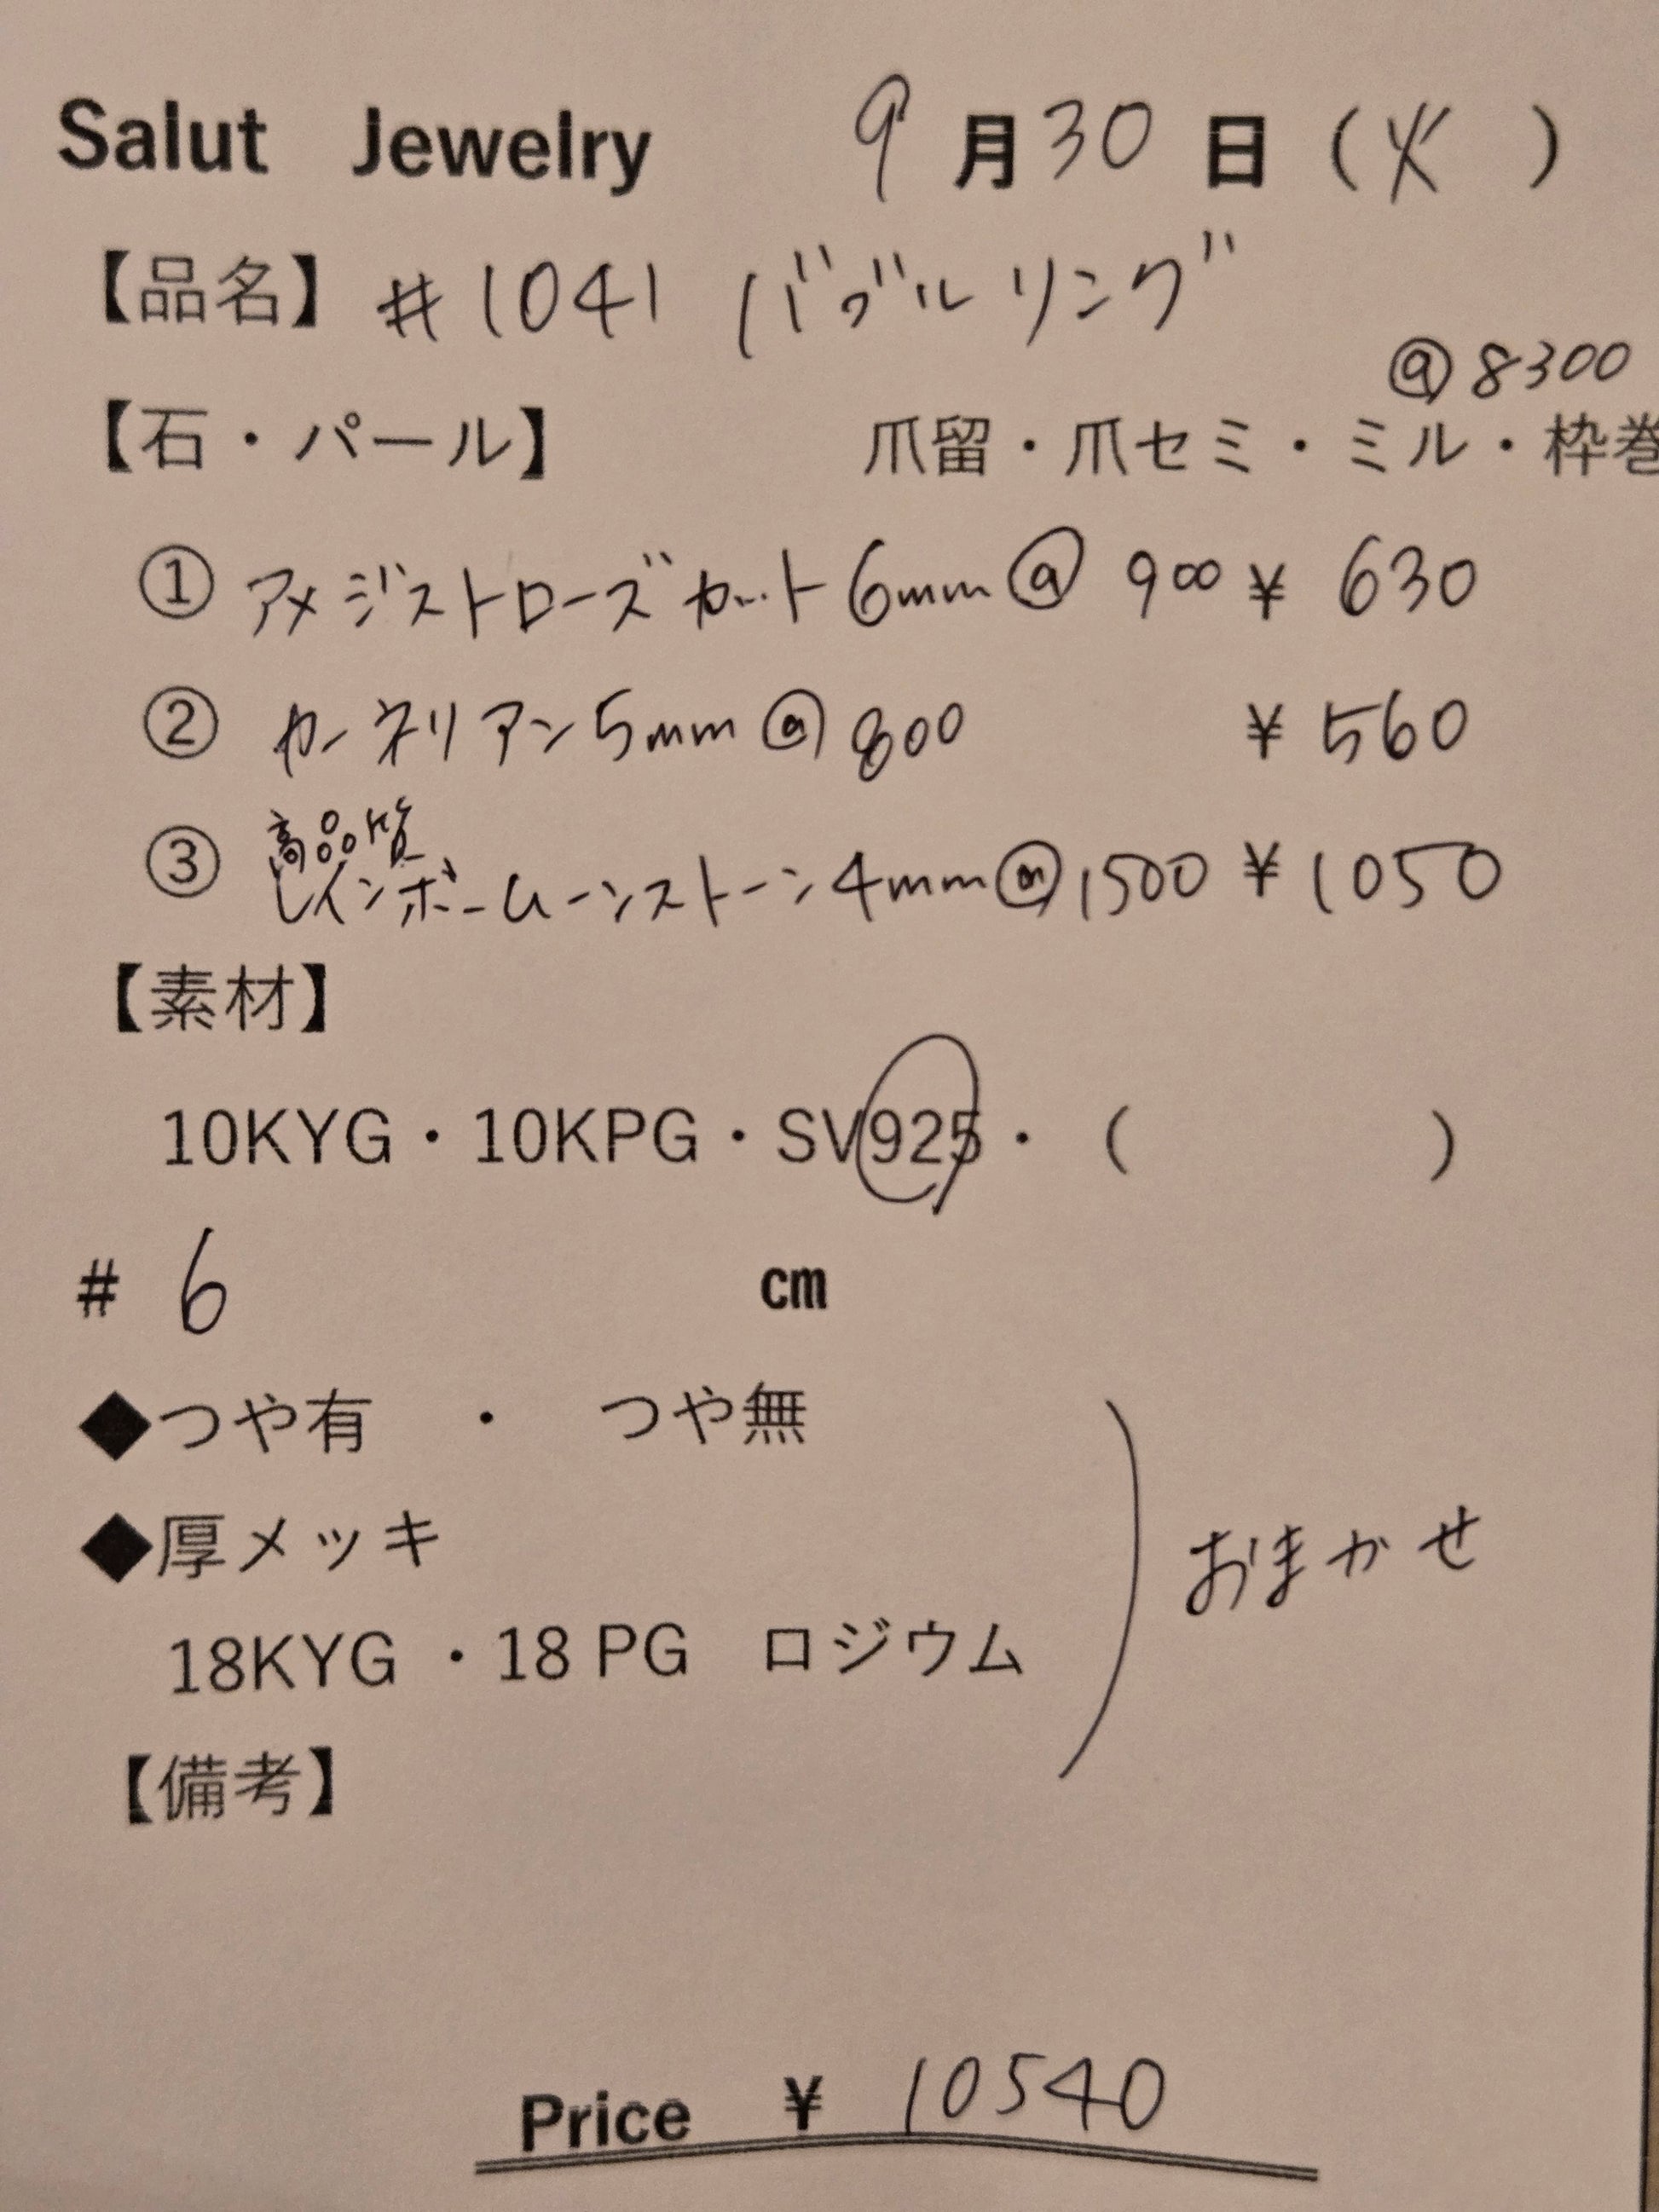 Salut Jewelry 9月30日(火)
【品名】#1041 バブルリング
@8300
【石・パール】 爪留・爪セミ・ミル・枠巻
① アメジストローズカット6mm@900 ¥630
② カーネリアン5mm@800 ¥560
③ 高品質
レインボームーンストーン4mm@1500 ¥1050
【素材】
10KYG・10KPG・SV925・( )
# 6 cm
◆つや有 ・ つや無
◆厚メッキ
おまかせ
18KYG ・18 PG ロジウム
【備考】
Price ¥ 10540